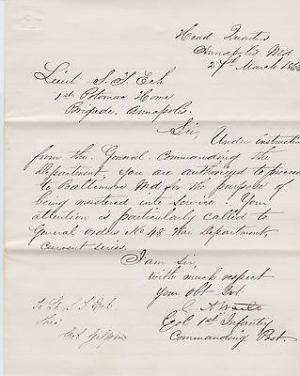 Head Quarters
Annapolis Md
27th March 186
Lieut S. T. Eck
1st Potomac Home
Brigade, Annapolis.
Sir,
Under instruction
from the General Commanding the
Department, you are authorized to proceed
to Baltimore Md for the purpose of
being mustered into service. Your
attention is particularly called to
General Orders No 48 War Department,
current series.
I am Sir,
with much respect
Your Obt Svt
Col 1st Infantry
Commanding Post.
To Lt. S. T. Eck
Thro'
Col Gilpin